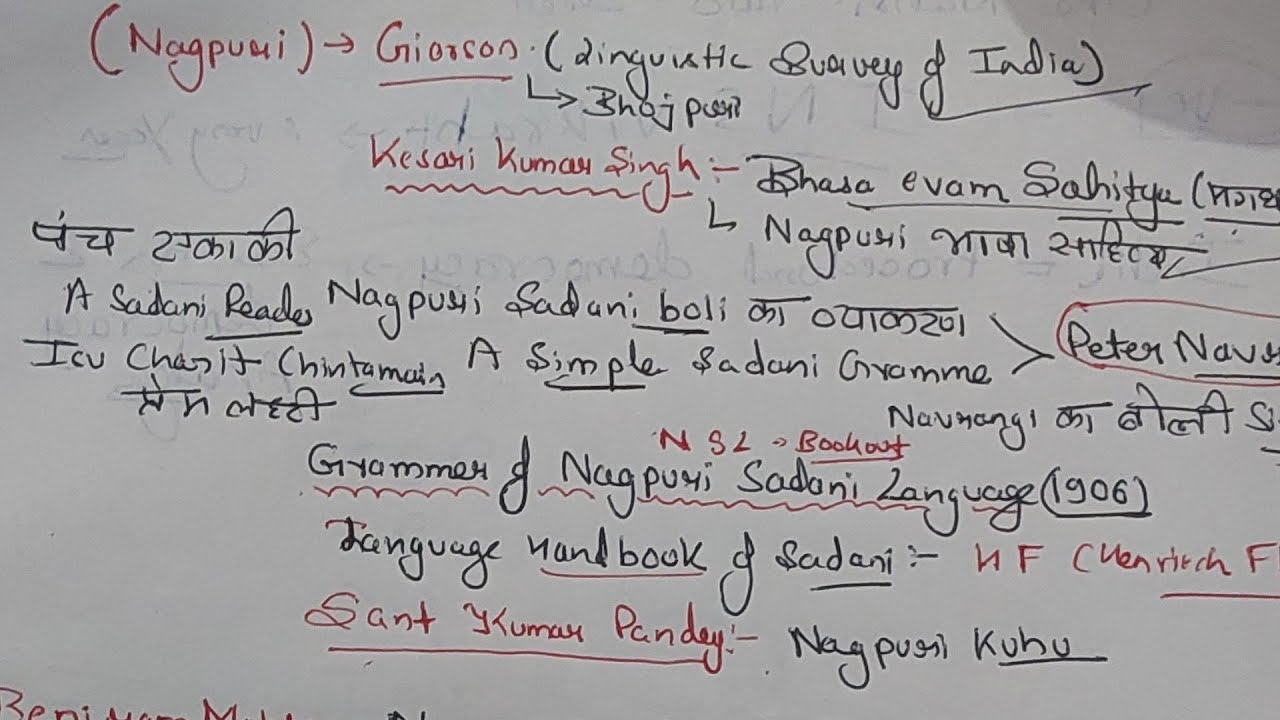 (Nagpuri) → Giorson. (Linguistic Survey of India)
↳ Bhojpuri
Kesari Kumar Singh :- Bhasa evam Sahitya (मगध
↳ Nagpuri भाषा साहित्य
पंच एकाकी
A Sadani Reader Nagpuri Sadani boli का व्याकरण
Isu Charit Chintamain A Simple Sadani Gramme > Peter Navr
प्रेम लहरी
Navrangi का बोली S
NSL → Bookout
Grammer of Nagpuri Sadani Language (1906)
Language Handbook of Sadani :- HF (Henrich F
Sant Kumar Pandey :- Nagpuri Kuhu